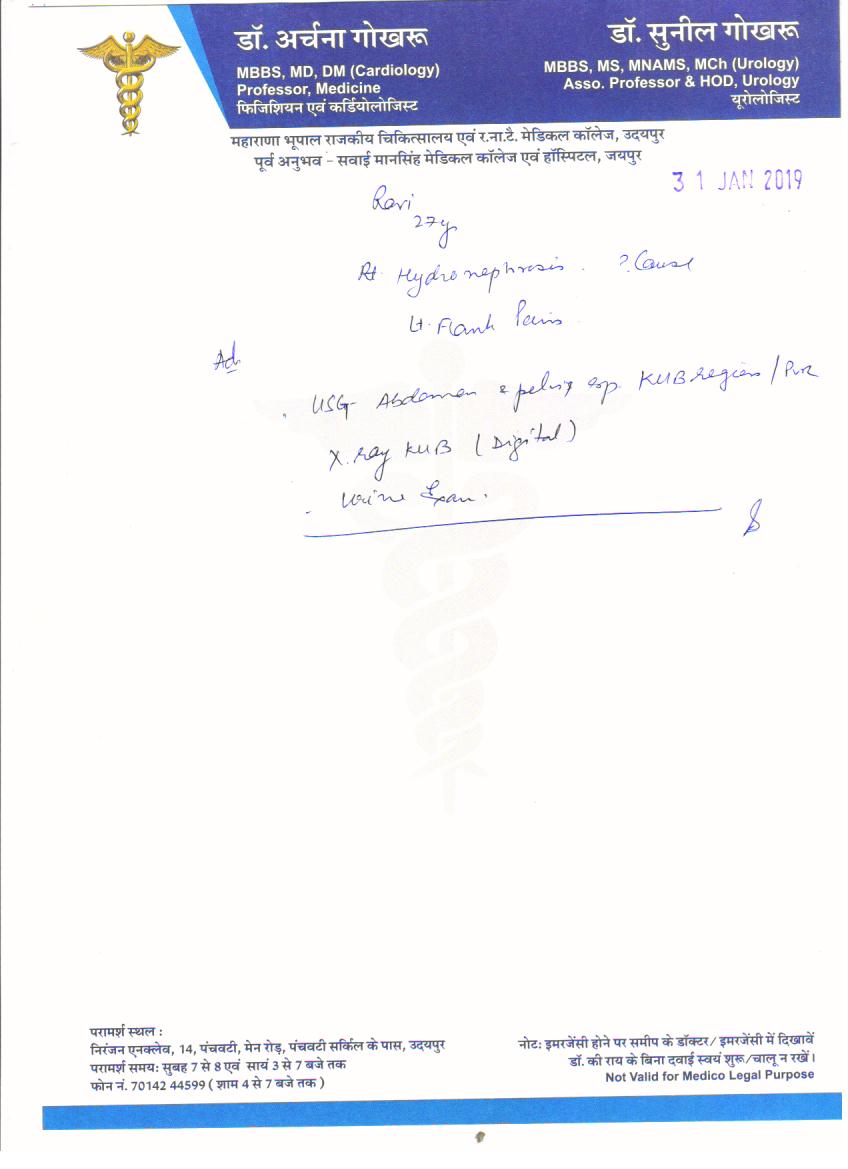 डॉ. अर्चना गोखरू
MBBS, MD, DM (Cardiology)
Professor, Medicine
फिजिशियन एवं कर्डियोलोजिस्ट
डॉ. सुनील गोखरू
MBBS, MS, MNAMS, MCh (Urology)
Asso. Professor & HOD, Urology
यूरोलोजिस्ट
महाराणा भूपाल राजकीय चिकित्सालय एवं र.ना.टै. मेडिकल कॉलेज, उदयपुर
पूर्व अनुभव - सवाई मानसिंह मेडिकल कॉलेज एवं हॉस्पिटल, जयपुर
31 JAN 2019
Ravi
27y
Rt. Hydronephrosis. ? Cause
Lt. Flank Pain
Ad
USG Abdomen & pelvis esp. KUB region / PVR
X.ray KUB (Digital)
Urine Exam.
परामर्श स्थल :
निरंजन एनक्लेव, 14, पंचवटी, मेन रोड़, पंचवटी सर्किल के पास, उदयपुर
परामर्श समय: सुबह 7 से 8 एवं सायं 3 से 7 बजे तक
फोन नं. 70142 44599 ( शाम 4 से 7 बजे तक )
नोट: इमरजेंसी होने पर समीप के डॉक्टर/ इमरजेंसी में दिखावें
डॉ. की राय के बिना दवाई स्वयं शुरू/चालू न रखें।
Not Valid for Medico Legal Purpose